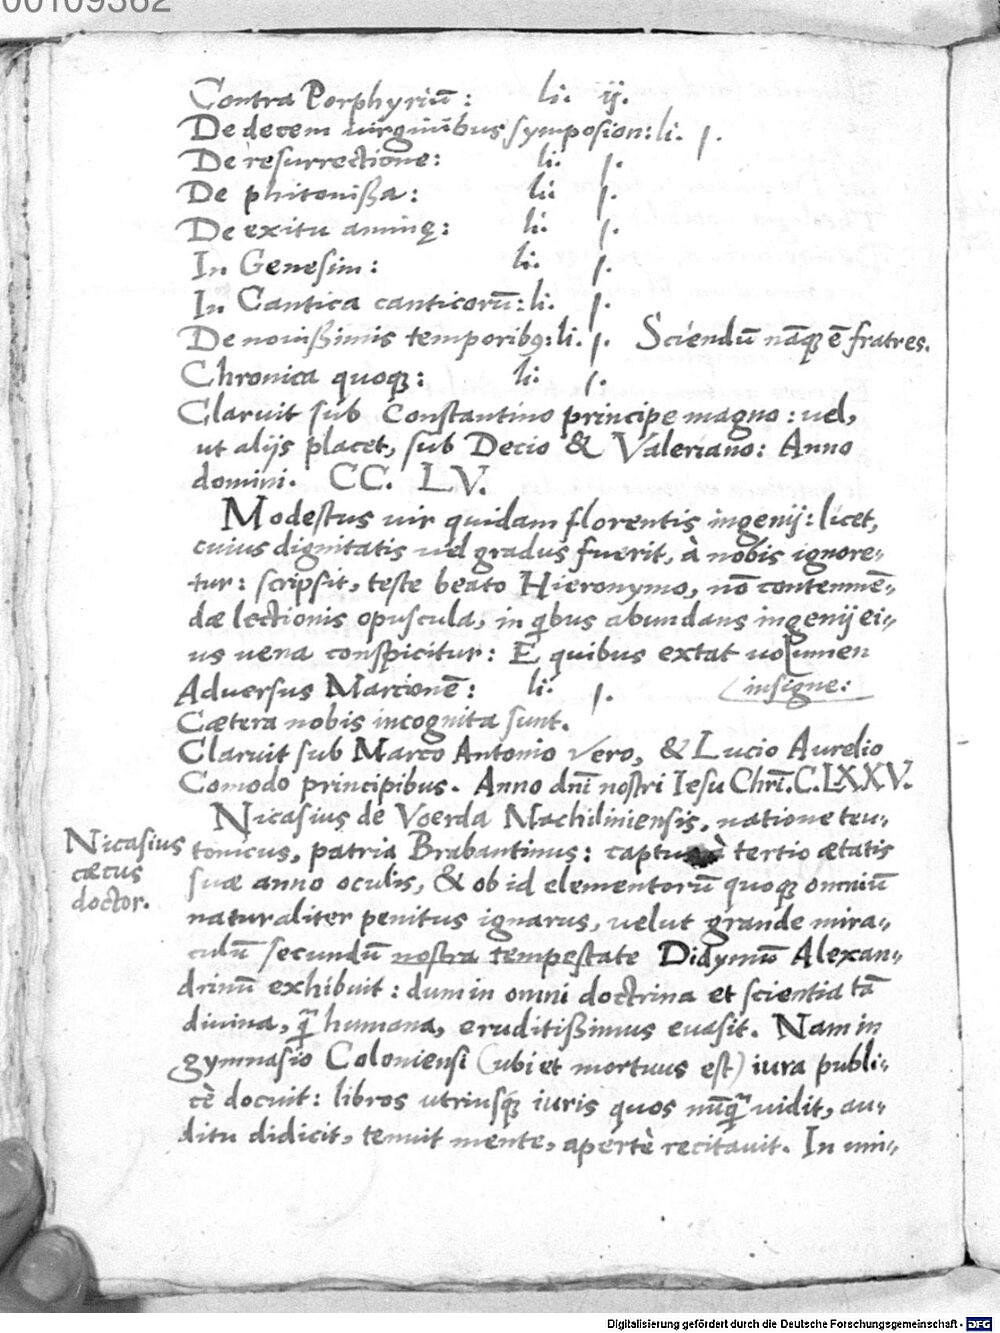 00109362
Contra Porphyriū: li. ij.
De decem virginibus symposion: li. j.
De resurrectione: li. j.
De phitonißa: li. j.
De exitu animę: li. j.
In Genesim: li. j.
In Cantica canticorū: li. j.
De nouißimis temporibꝰ: li. j. Sciendū nāqꝫ ē fratres.
Chronica quoqꝫ: li. j.
Claruit sub Constantino principe magno: uel,
ut alijs placet, sub Decio & Valeriano: Anno
domini. CC. LV.
Modestus uir quidam florentis ingenij: licet,
cuius dignitatis uel gradus fuerit, à nobis ignore-
tur: scripsit, teste beato Hieronymo, nō contemnē-
dæ lectionis opuscula, in qbus abundans ingenij ei-
us uena conspicitur: E quibus extat uolumen
insigne:
Aduersus Marcionē: li. j.
Cætera nobis incognita sunt.
Claruit sub Marco Antonio Vero, & Lucio Aurelio
Comodo principibus. Anno dnī nostri Iesu Chrī. C.LXXV.
Nicasius de Voerda Machiliniensis, natione teu-
Nicasius cæcus doctor.
tonicus, patria Brabantinus: captus à tertio ætatis
suæ anno oculis, & ob id elementorū quoqꝫ omniū
naturaliter penitus ignarus, uelut grande mira-
culū secundū nostra tempestate Didymū Alexan-
drinū exhibuit: dum in omni doctrina et scientia tā
diuina, qᷓ humana, eruditißimus euasit. Nam in
gymnasio Coloniensi (ubi et mortuus est) iura publi-
cè docuit: libros utriusqꝫ iuris quos nūqᷓ uidit, au-
ditu didicit, tenuit mente, apertè recitauit. In uni-
Digitalisierung gefördert durch die Deutsche Forschungsgemeinschaft - DFG